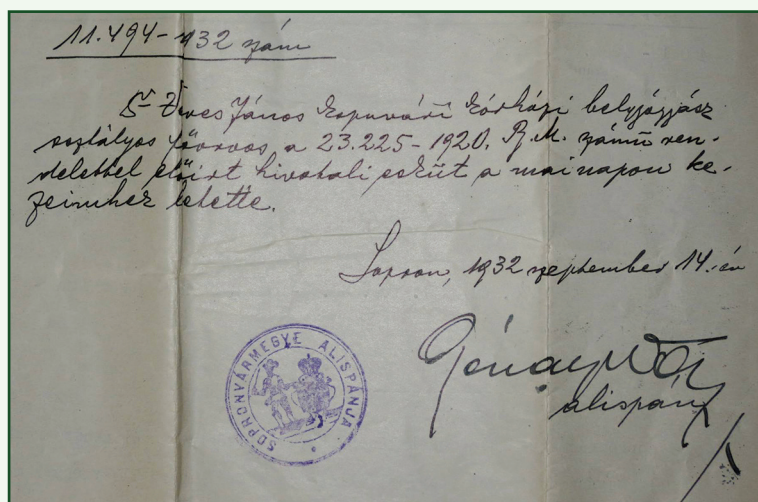 11.494-932 szám
Dr János kapuvári kórházi belgyógyász
osztályos főorvos a 23.225-1920. B.M. számú ren-
delettel előírt hivatali esküt a mai napon ke-
zeimhez letette.
Sopron, 1932 szeptember 14.-én
alispán
SOPRONVÁRMEGYE ALISPÁNJA